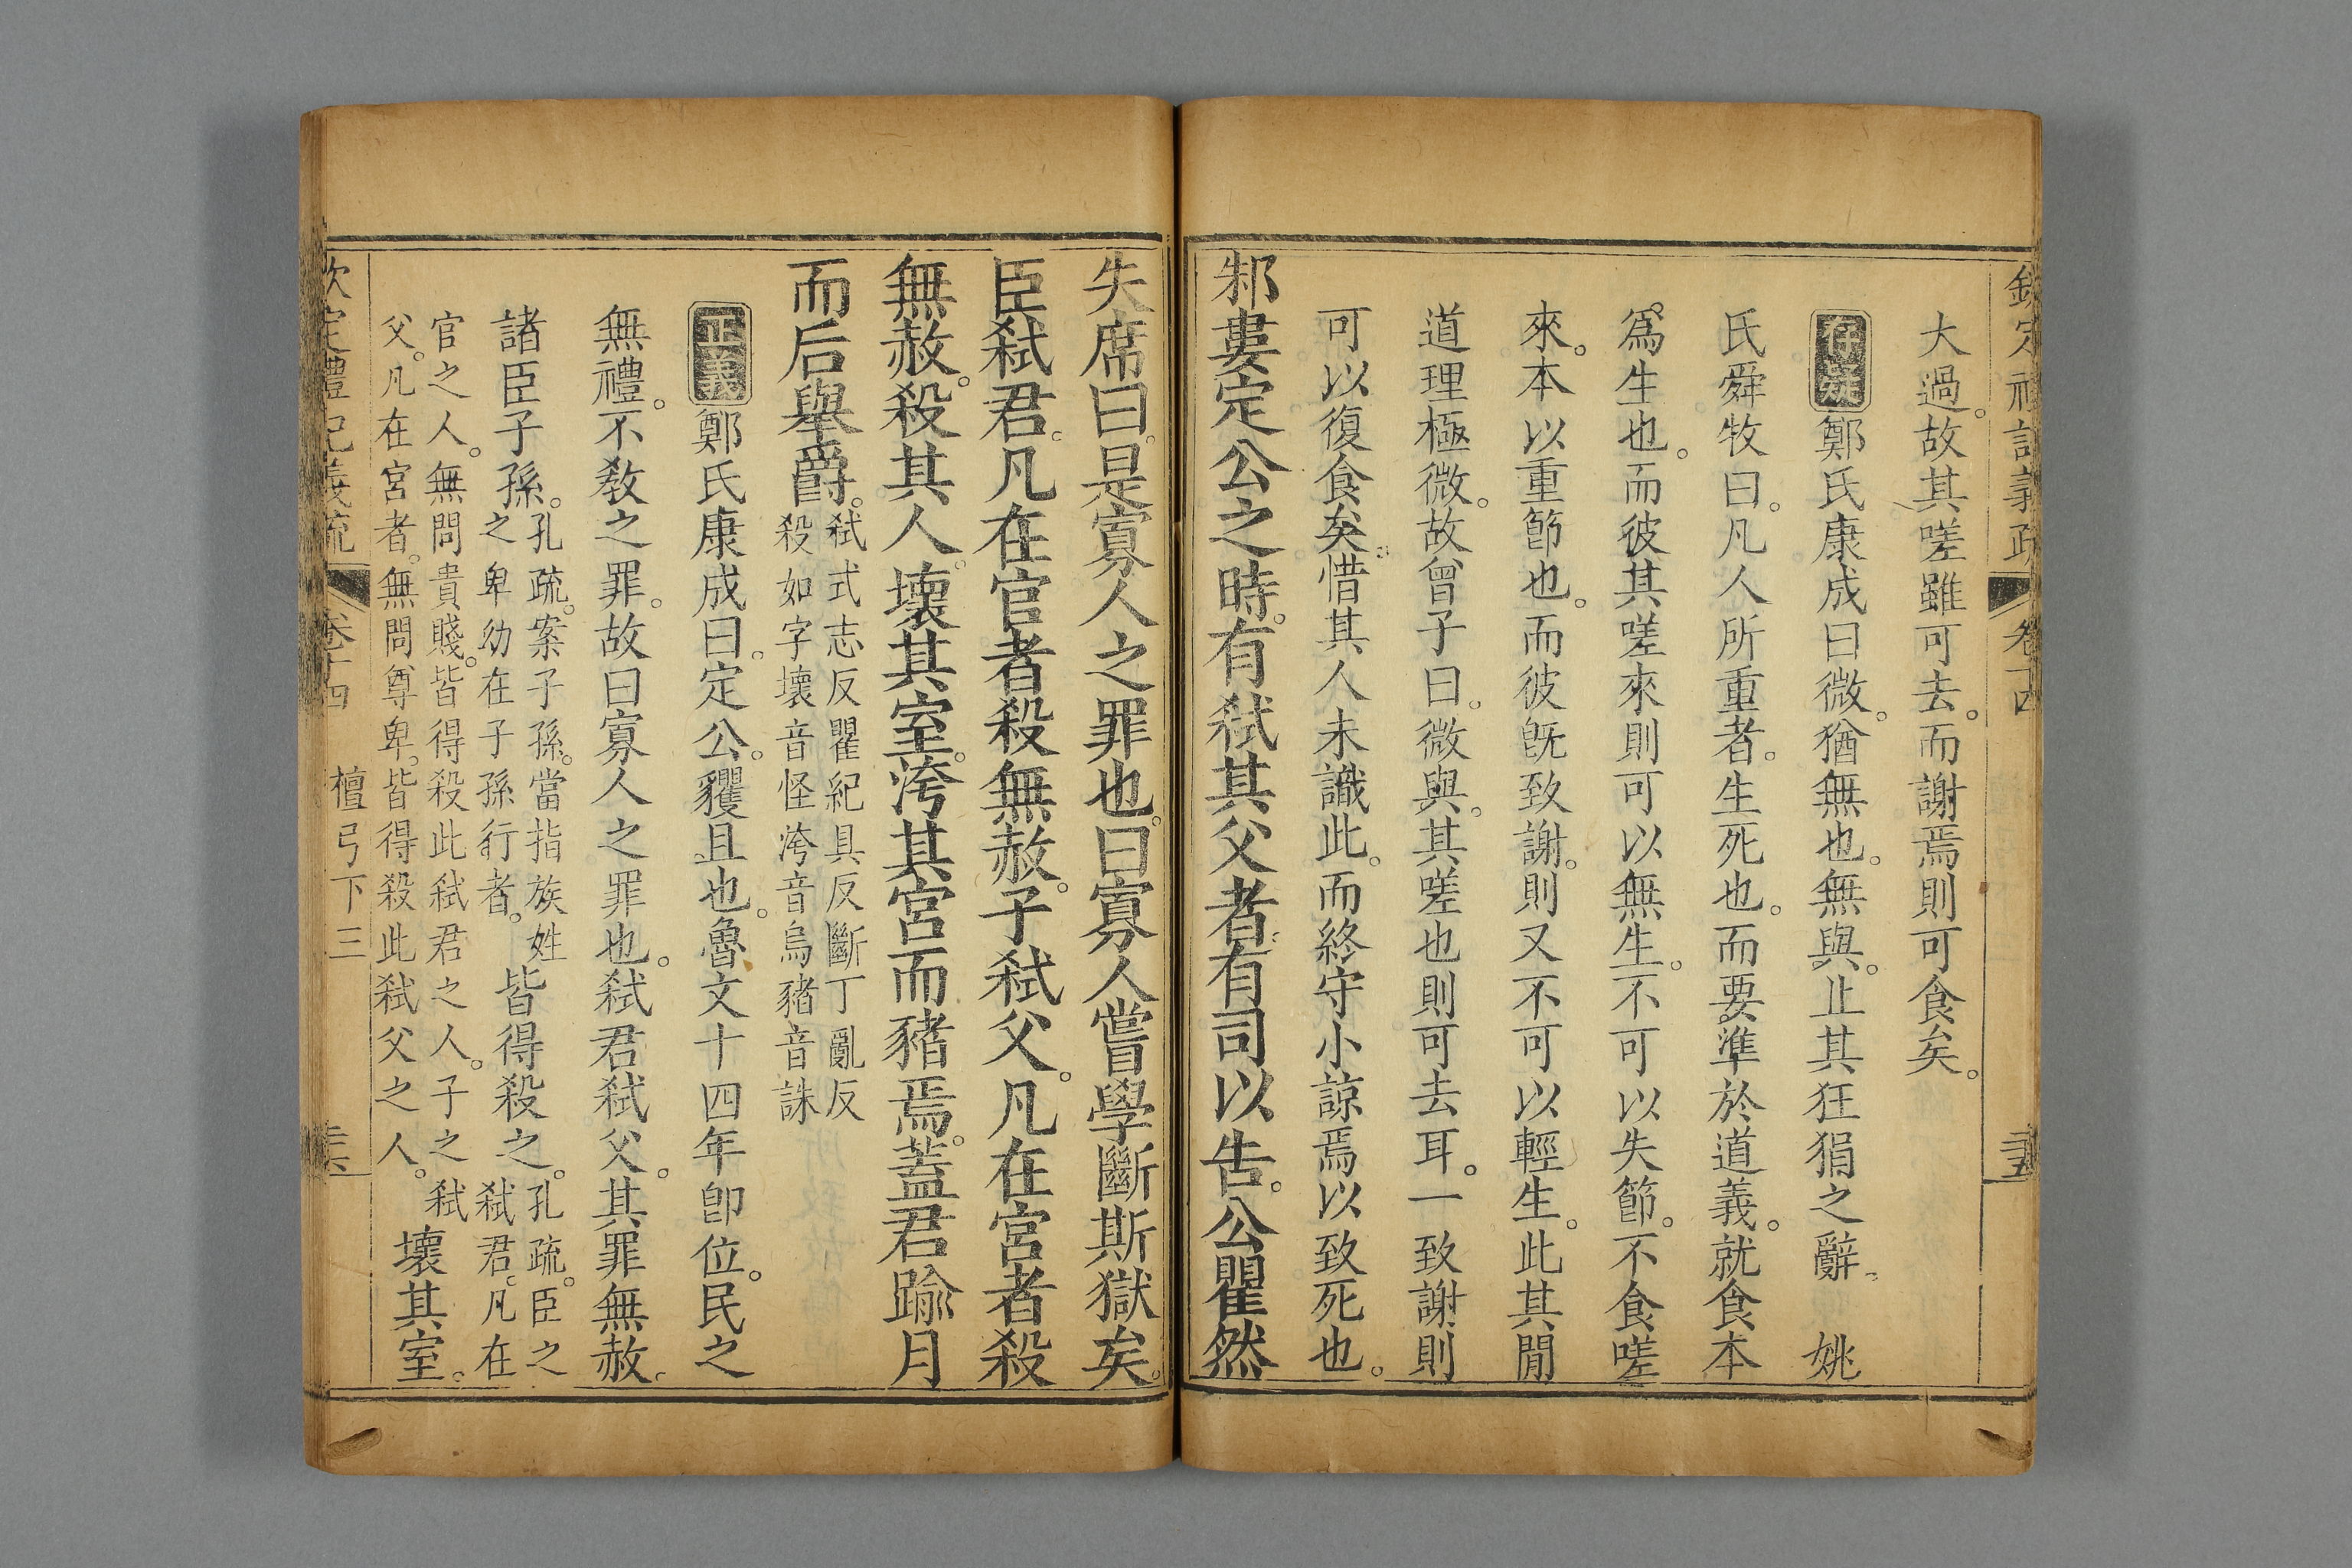 欽定禮記義疏 卷十四 三五
大過。故其嗟雖可去。而謝焉則可食矣。
存疑 鄭氏康成曰微。猶無也。無與。止其狂狷之辭。 姚
氏舜牧曰。凡人所重者。生死也。而要準於道義。就食本
爲生也。而彼其嗟來則可以無生。不可以失節。不食嗟
來。本以重節也。而彼旣致謝。則又不可以輕生。此其閒
道理極微。故曾子曰。微與。其嗟也則可去耳。一致謝則
可以復食矣。惜其人未識此。而終守小諒焉以致死也。
邾婁定公之時。有弑其父者。有司以告。公瞿然
失席曰。是寡人之罪也。曰寡人嘗學斷斯獄矣。
臣弑君。凡在官者殺無赦。子弑父。凡在宮者殺
無赦。殺其人。壞其室。洿其宮而豬焉。蓋君踰月
而后舉爵。弑式志反瞿紀具反斷丁亂反
殺如字壞音怪洿音烏豬音誅
正義 鄭氏康成曰。定公。貜且也。魯文十四年卽位。民之
無禮。不敎之罪。故曰寡人之罪也。弑君弑父。其罪無赦。
諸臣子孫。孔疏。案子孫。當指族姓
之卑幼在子孫行者。皆得殺之。孔疏。臣之
弑君。凡在
官之人。無問貴賤。皆得殺此弑君之人。子之弑
父。凡在宮者。無問尊卑。皆得殺此弑父之人。壞其室。
欽定禮記義疏 卷十四 檀弓下三 三六